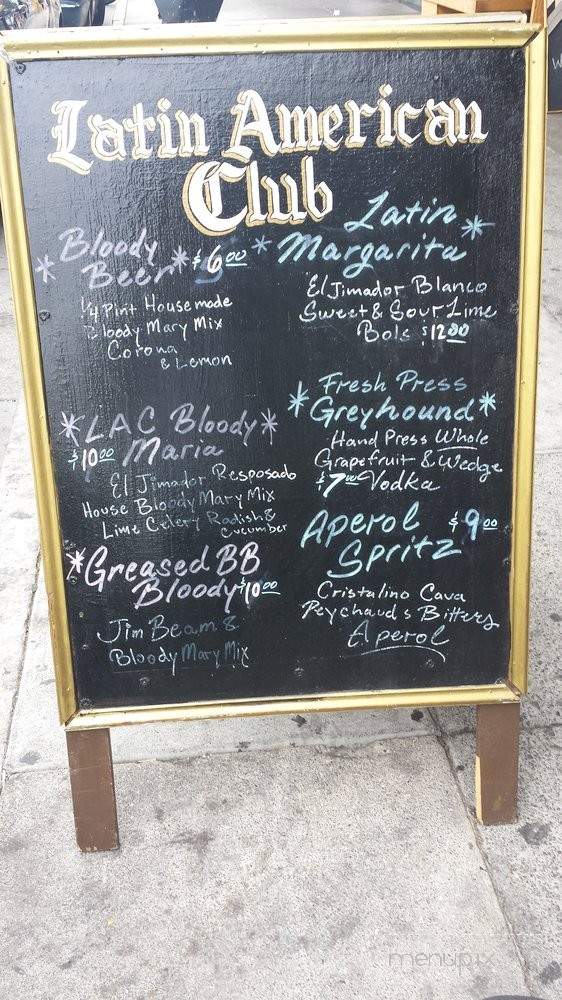 Latin American
Club
*Bloody
Beer* $6.00
1/4 Pint Housemade
Bloody Mary Mix
Corona
& Lemon
*LAC Bloody*
$10.00 Maria
El Jimador Resposado
House Bloody Mary Mix
Lime Celery Radish &
Cucumber
*Greased BB
Bloody $10.00
Jim Beam &
Bloody Mary Mix
Latin
*Margarita*
El Jimador Blanco
Sweet & Sour Lime
Bols $12.00
Fresh Press
*Greyhound*
Hand Press Whole
Grapefruit & Wedge
$7.00 Vodka
Aperol $9.00
Spritz
Cristalino Cava
Peychauds Bitters
Aperol
menupix